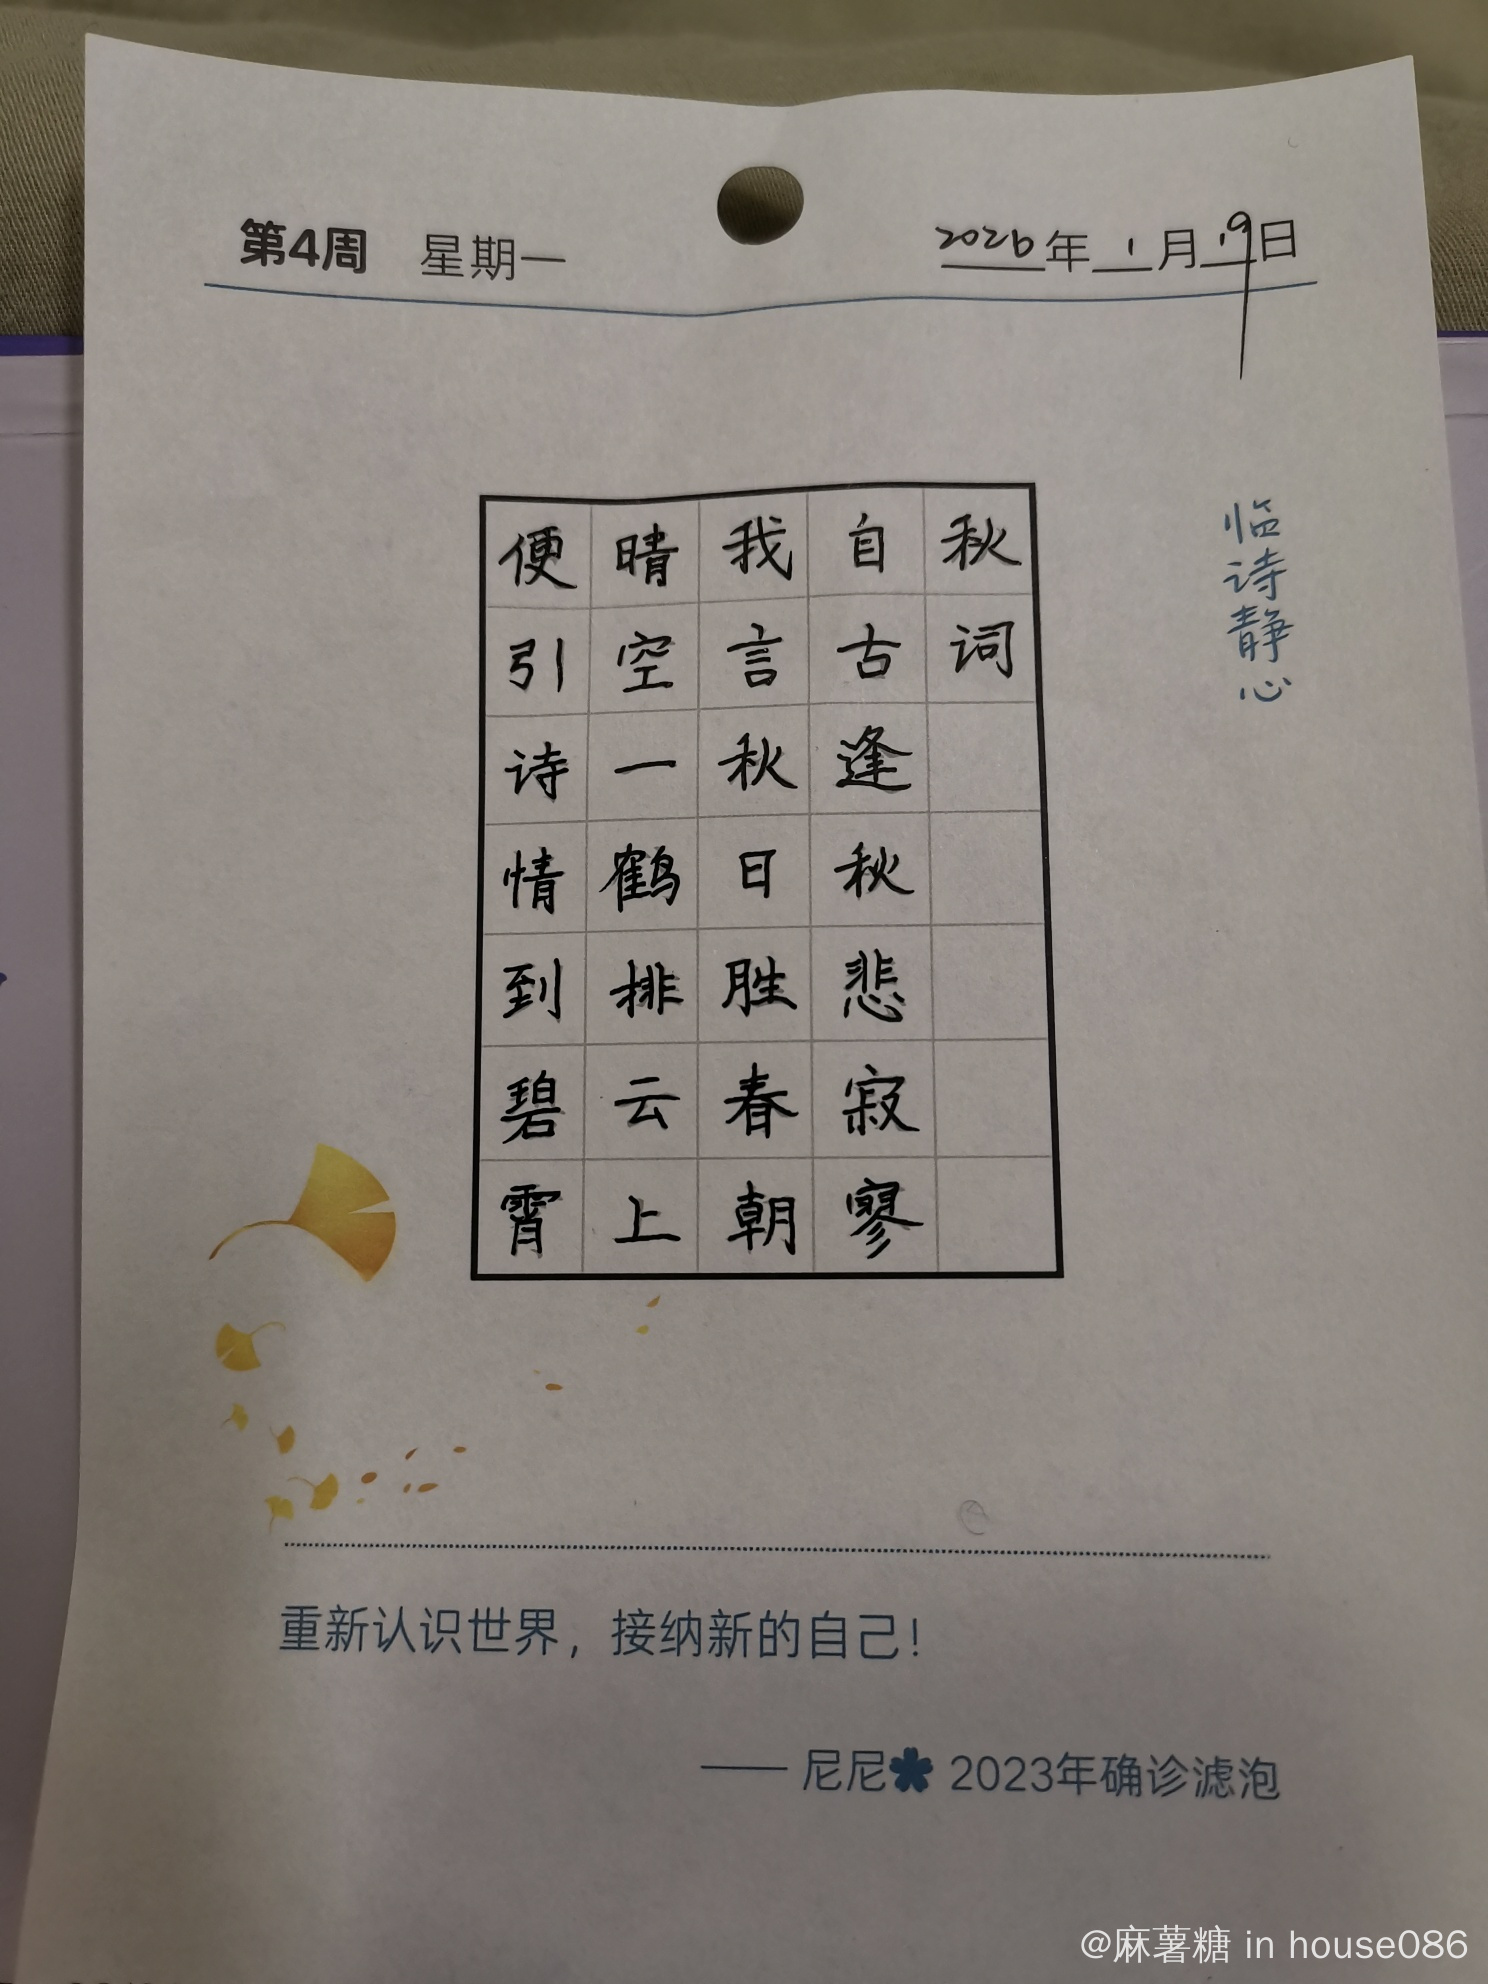 第4周 星期一 2026年1月19日
临诗静心
秋词
自古逢秋悲寂寥
我言秋日胜春朝
晴空一鹤排云上
便引诗情到碧霄
重新认识世界，接纳新的自己！
—— 尼尼 2023年确诊滤泡
@麻薯糖 in house086